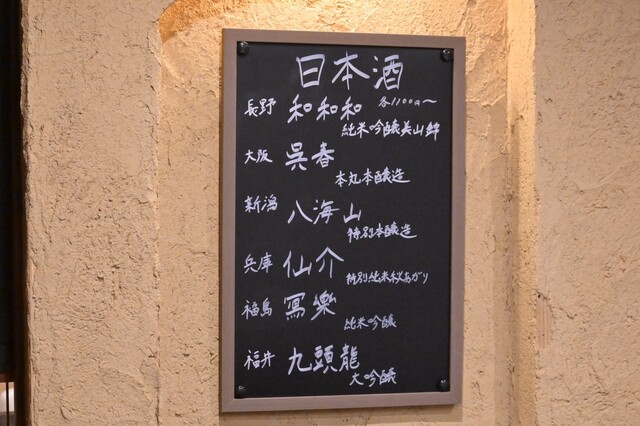 日本酒
各1100円〜
長野 和和和
純米吟醸美山錦
大阪 呉春
本丸本醸造
新潟 八海山
特別本醸造
兵庫 仙介
特別純米秋あがり
福島 寫樂
純米吟醸
福井 九頭龍
大吟醸